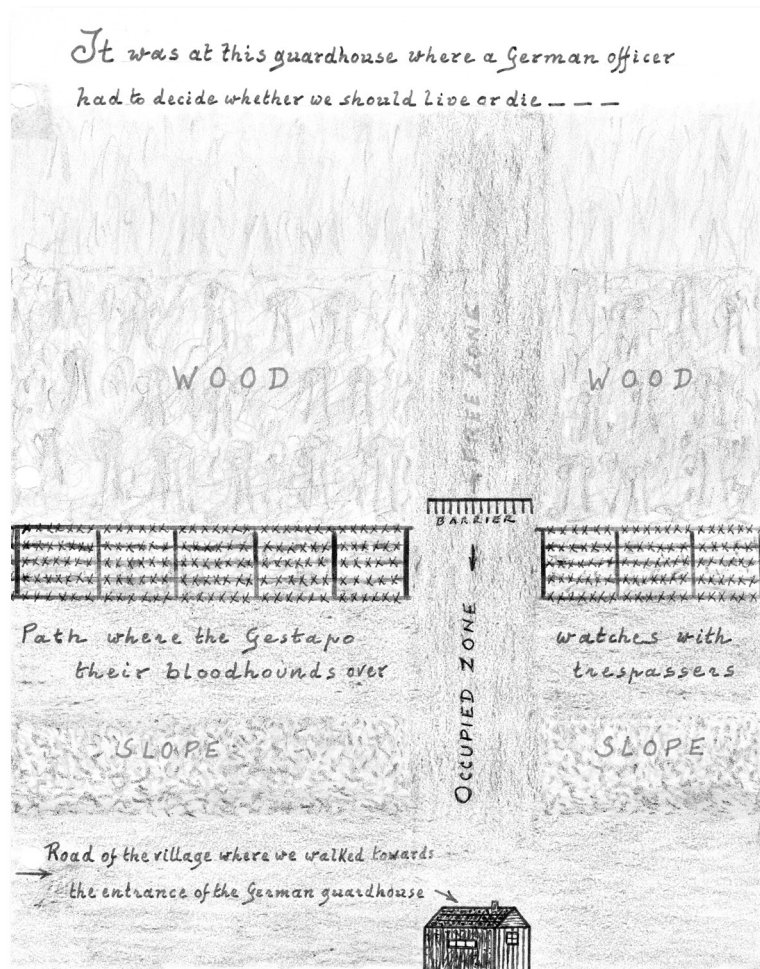 It was at this guardhouse where a German officer
had to decide whether we should live or die _ _ _
FREE ZONE
WOOD
WOOD
BARRIER
Path where the Gestapo watches with
their bloodhounds over trespassers
OCCUPIED ZONE
SLOPE
SLOPE
Road of the village where we walked towards
the entrance of the German guardhouse